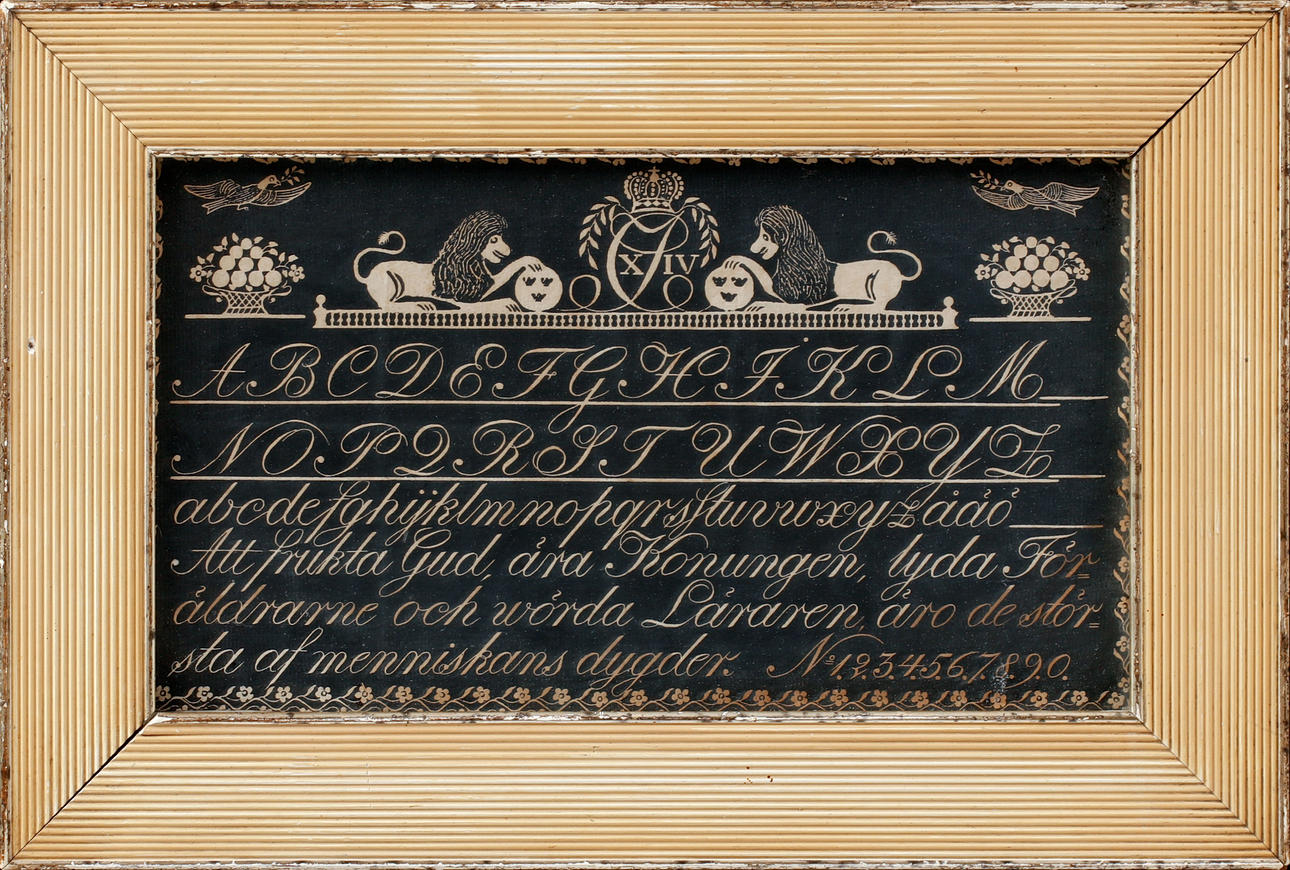 CJ XIV
A B C D E F G H I K L M
N O P Q R S T U W X Y Z
abcdefghijklmnopqrsſtuvwxyzåäö
Att frukta Gud, ära Konungen, lyda För=
äldrarne och wörda Läraren, äro de stör=
sta af menniskans dygder. Nº 1.2.3.4.5.6.7.8.9.0.